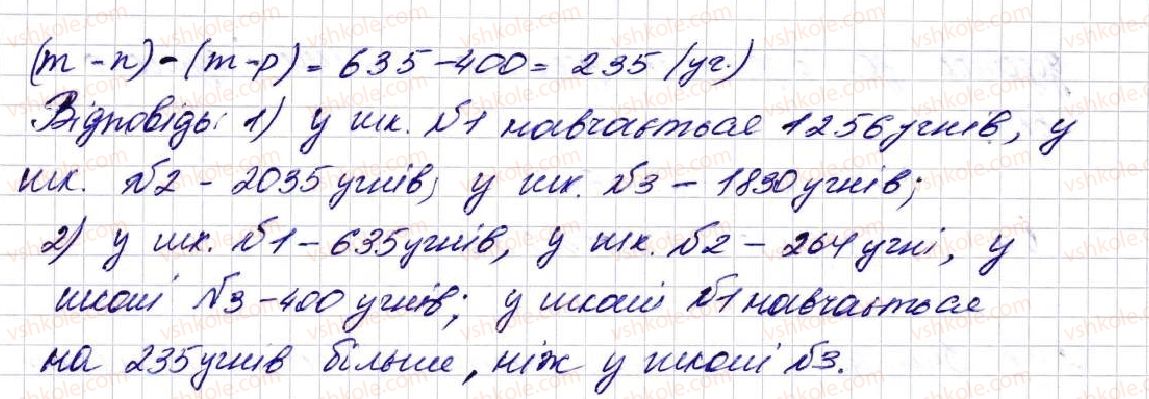 (m - n) - (m - p) = 635 - 400 = 235 (уч.)
Відповідь: 1) у шк. №1 навчається 1256 учнів, у
шк. №2 - 2035 учнів; у шк. №3 - 1830 учнів;
2) у шк. №1 - 635 учнів, у шк. №2 - 264 учні, у
школі №3 - 400 учнів; у школі №1 навчається
на 235 учнів більше, ніж у школі №3.